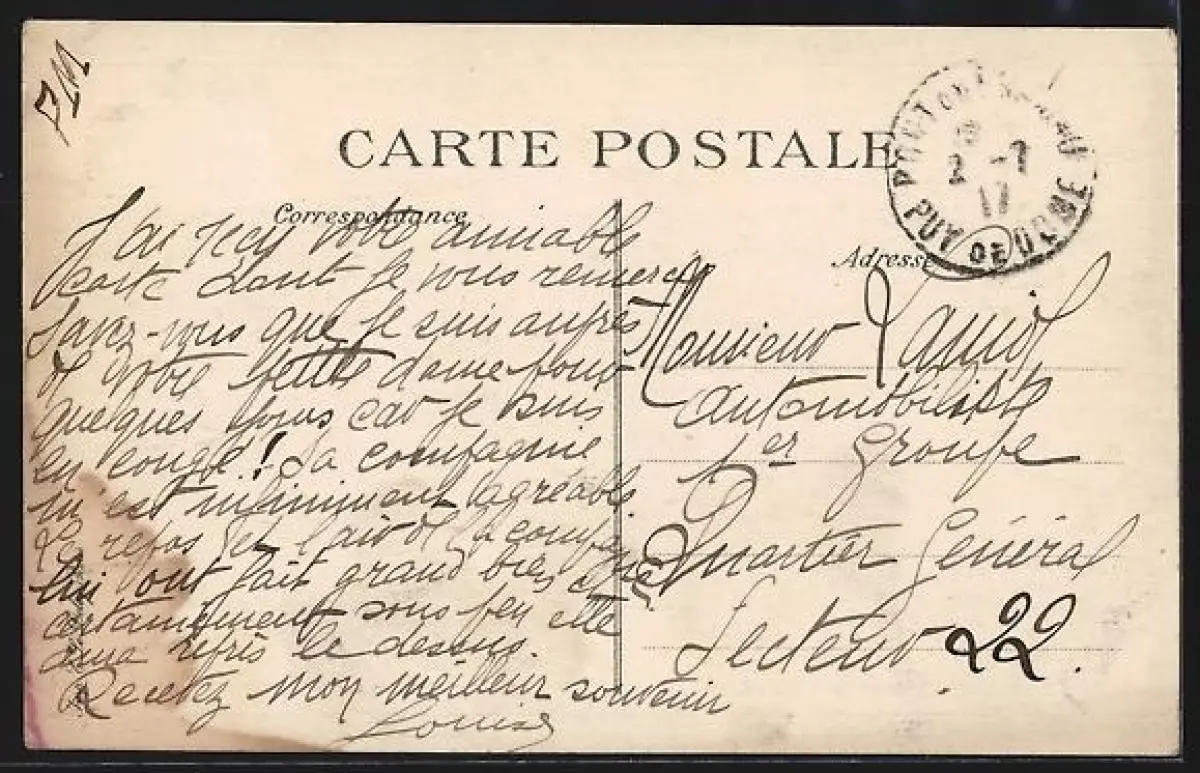 FM
CARTE POSTALE
PUY DE DOME
2 -7
17
Correspondance
Adresse
J'ai reçu votre aimable
carte dont je vous remerc
Savez-vous que je suis auprès
de votre petite dame pour
quelques jours car je suis
en congé! Sa compagnie
m'est infiniment agréable
Le repos et l'air de la campagne
lui font grand bien et
certainement sous peu elle
aura repris le dessus.
Recevez mon meilleur souvenir
Louise
Monsieur
automobiliste
1er Groupe
Quartier Général
Secteur 22.